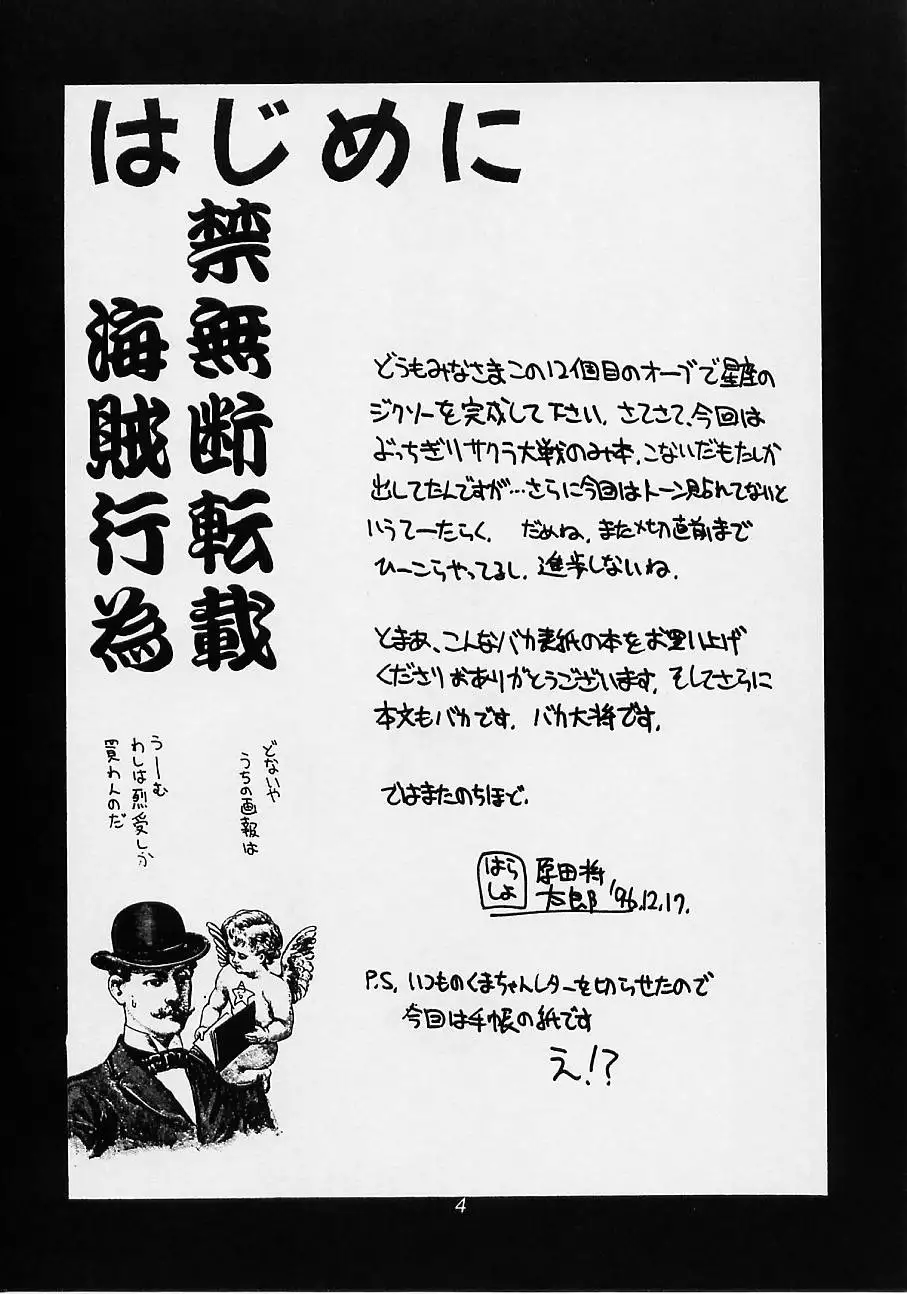 はじめに
禁無断転載
海賊行為
どうもみなさまこの12個目のオーブで星座の
ジクソーを完成して下さい。さてさて、今回は
ぶっちぎりサクラ大戦のみ本、こないだもたしか
出してたんですが…さらに今回はトーン貼れてないと
いうてーたらく。 だめね、また〆切直前まで
ひーこらやってるし、進歩しないね。
とまあ、こんなバカ表紙の本をお買い上げ
くださりおありがとうございます。そしてさらに
本文もバカです。バカ大将です。
ではまたのちほど。
はら
しょ
原田将
太郎 '96.12.17.
P.S. いつものくまちゃんレターを切らせたので
今回は手帳の紙です
え!?
どないや
うちの画報は
うーむ
わしは烈愛しか
買わんのだ
4